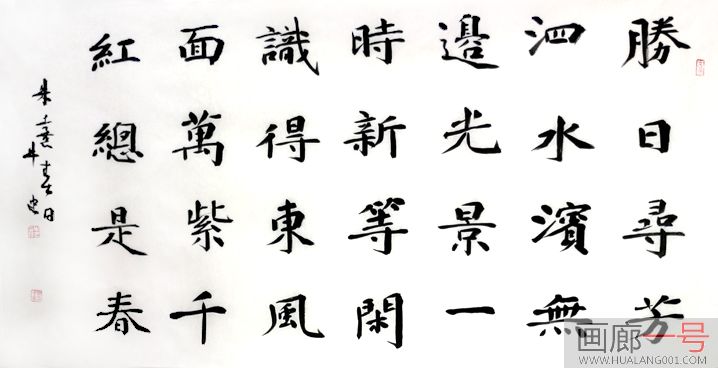 勝日尋芳
泗水濱無
邊光景一
時新等閑
識得東風
面萬紫千
紅總是春
朱熹春日
画廊一号
WWW.HUALANG001.COM